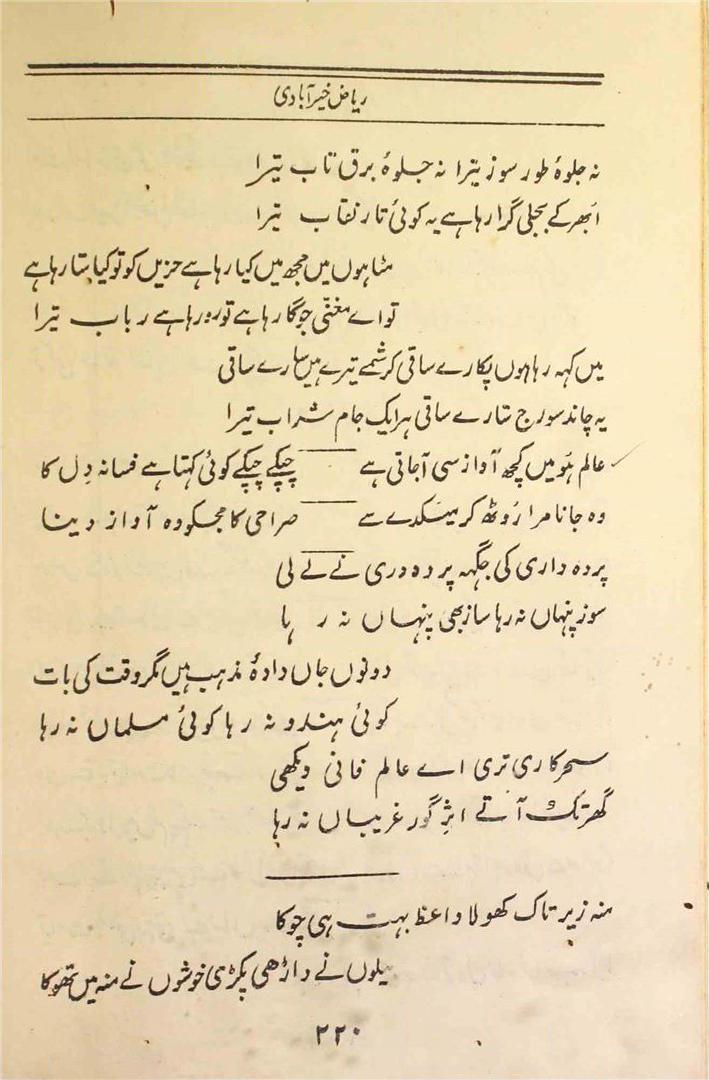 ریاض خیرآبادی
نہ جلوۂ طور سوز تیرا نہ جلوۂ برق تاب تیرا
ابھر کے بجلی گرا رہا ہے یہ کوئی تار نقاب تیرا
مٹا ہوں میں مجھ میں کیا رہا ہے حزیں کو تو کیا ستا رہا ہے
تو اے مغنّی جو گا رہا ہے تو رو رہا ہے رباب تیرا
میں کہہ رہا ہوں پکارے ساقی کرشمے تیرے ہیں سارے ساقی
یہ چاند سورج ستارے ساقی ہر ایک جام شراب تیرا
عالم ہُو میں کچھ آواز سی آجاتی ہے چپکے چپکے کوئی کہتا ہے فسانہ دل کا
وہ جانا مرا روٹھ کر میکدے سے صراحی کا مجکو وہ آواز دینا
پردہ داری کی جگہہ پردہ دری نے لے لی
سوز پنہاں نہ رہا ساز بھی پنہاں نہ رہا
دونوں جاں دادۂ مذہب ہیں مگر وقت کی بات
کوئی ہندو نہ رہا کوئی مسلماں نہ رہا
سحر کاری تری اے عالم فانی دیکھی
گھر تک آتے اثر گور غریباں نہ رہا
منہ زیر تاک کھولا واعظ بہت ہی چوکا
بیلوں نے داڑھی پکڑی خوشوں نے منہ میں تھوکا
۲۲۰